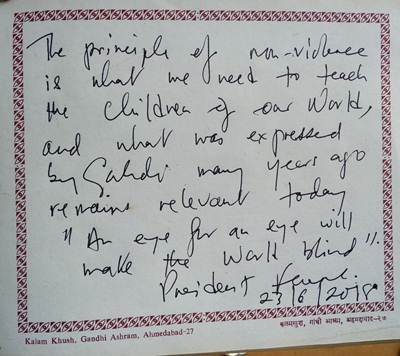 The principle of non-violence
is what we need to teach
the children of our World,
and what was expressed
by Gahdi many years ago
remains relevant today
"An eye for an eye will
make the World blind".
President
23/6/2018
Kalam Khush, Gandhi Ashram, Ahmedabad-27
कलमखुश, गांधी आश्रम, अहमदाबाद-२७